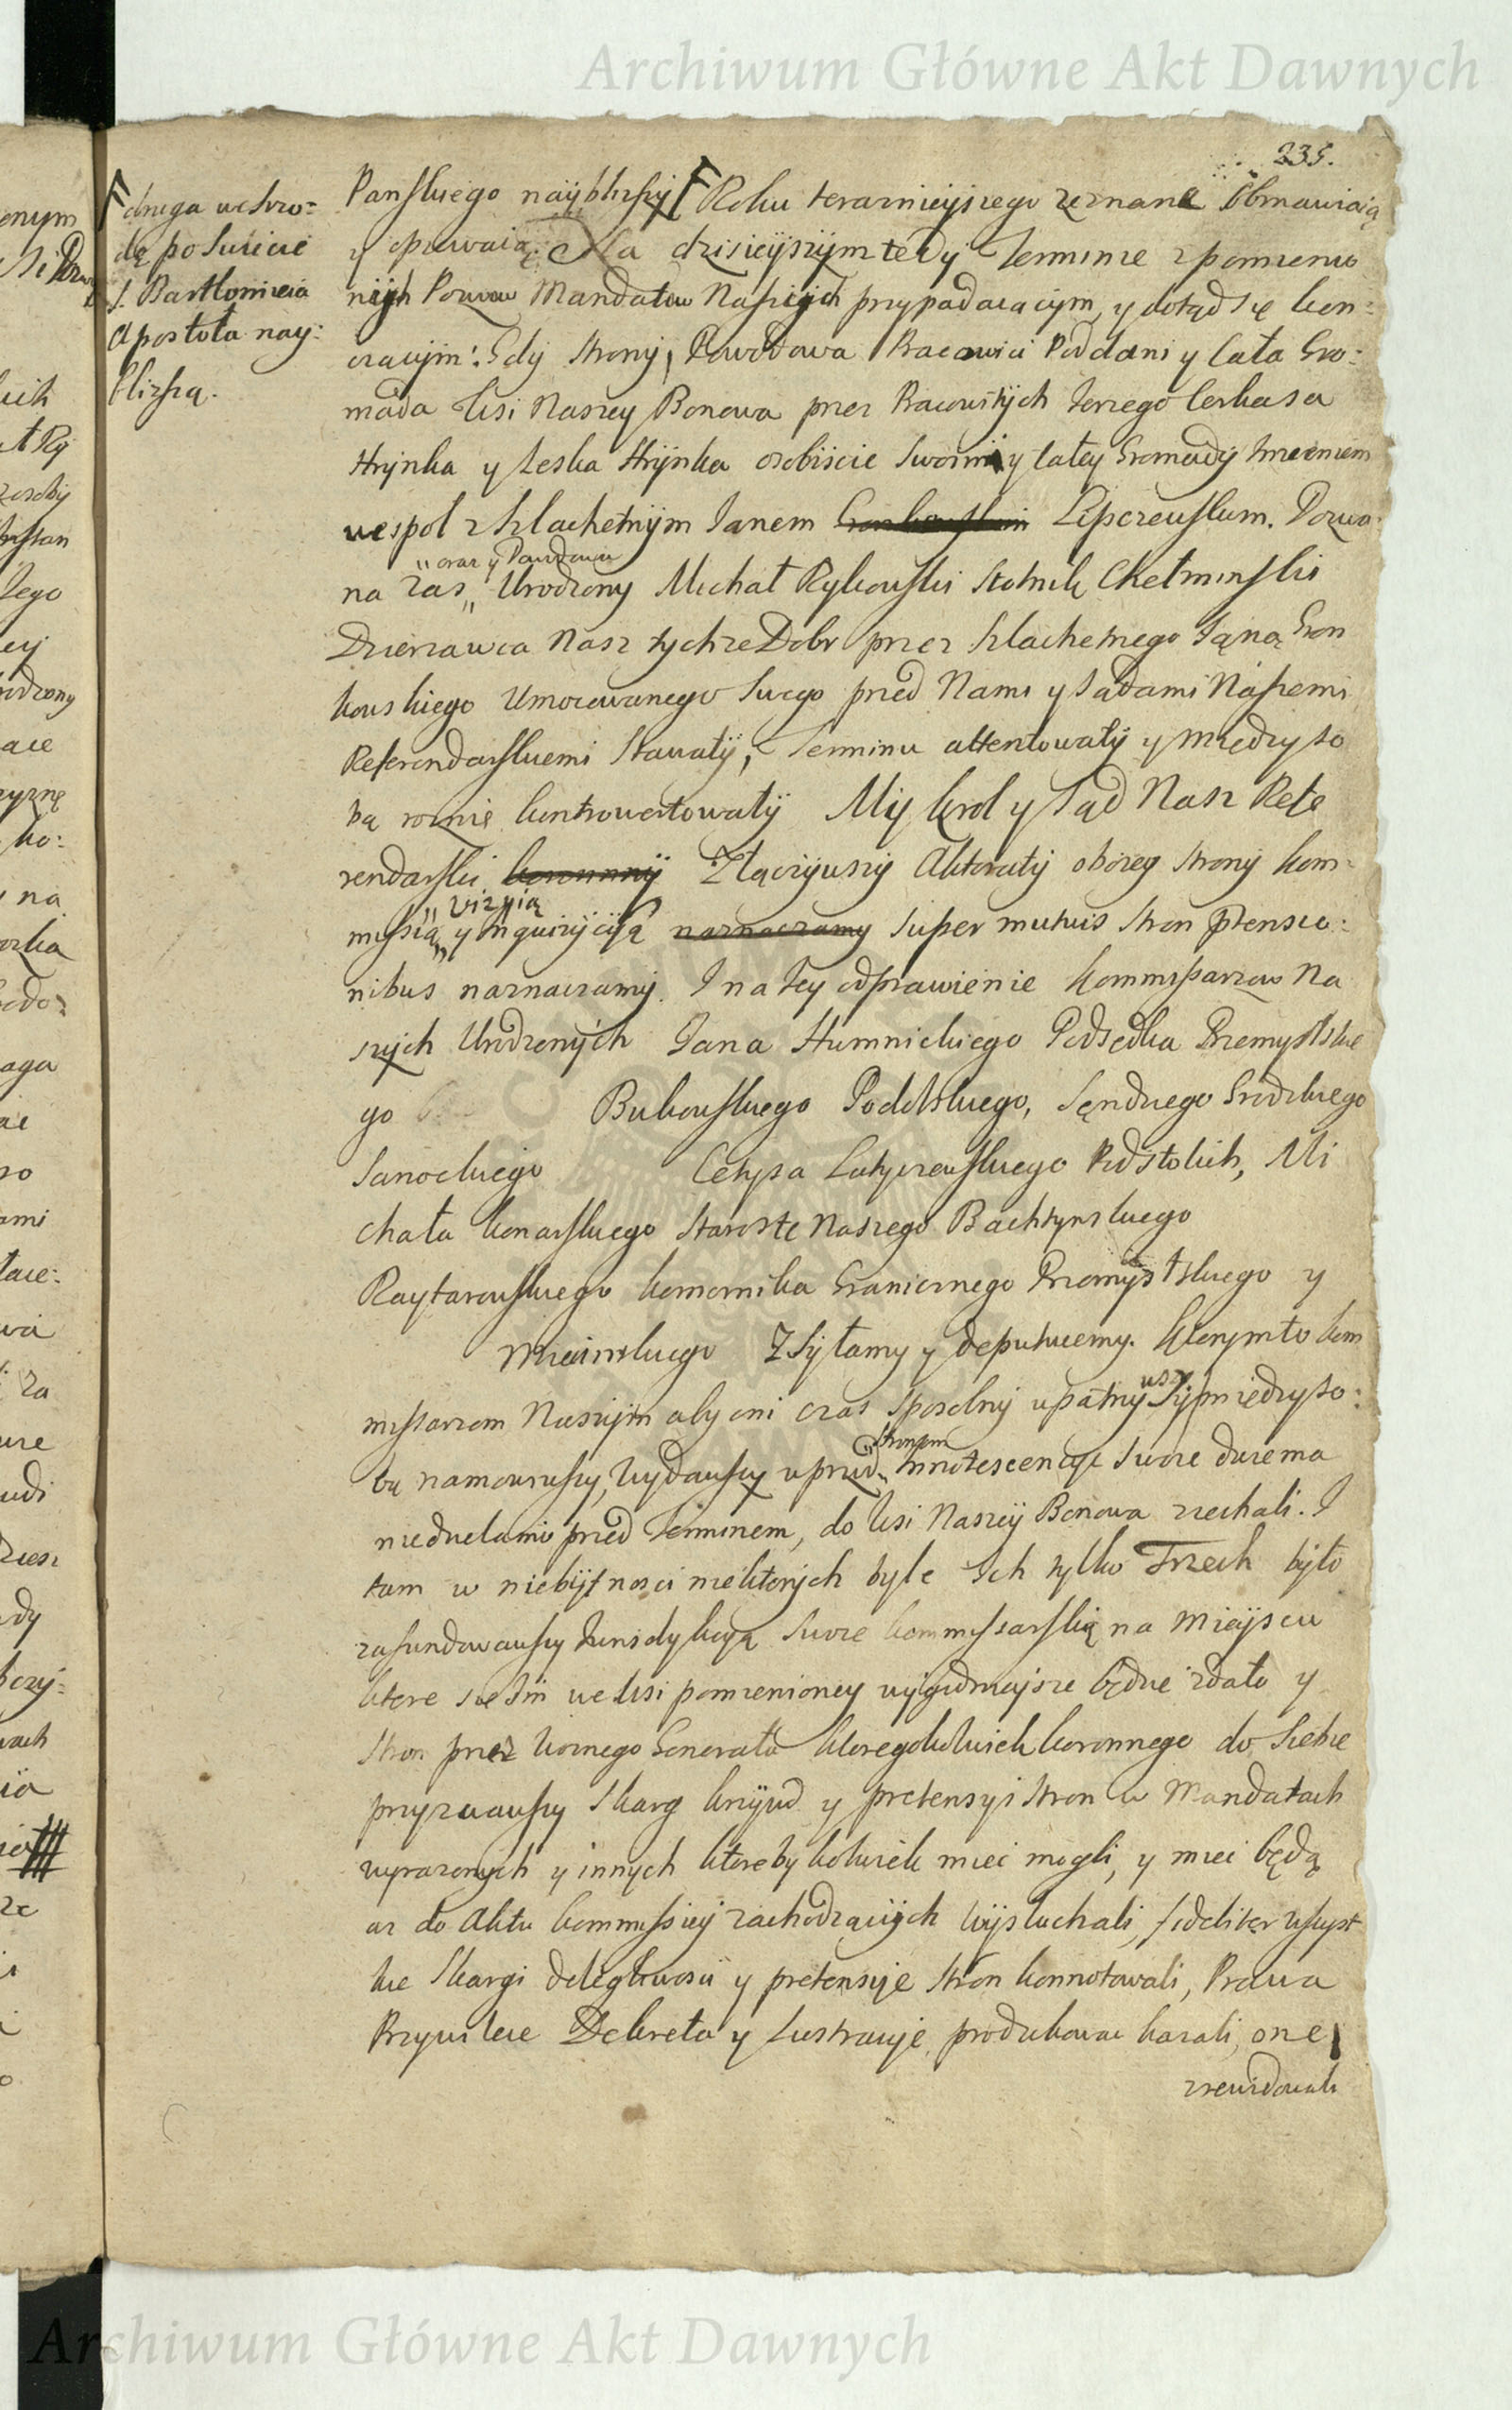 Archiwum Główne Akt Dawnych
235.
druga we Szro=
dę po Swięcie
S. Bartłomieia
Apostoła nay=
blizszą.
Panskiego naÿblizszÿ Roku teraznieÿszego zeznane obmawiaią
y opiewaią. Na dzisieÿszÿm tedy Terminie z pomienio
nÿch Pozwow Mandatow Naszÿch przypadaiącÿm, y dotąd się kon=
czącÿm: Gdÿ Stronÿ, Powodowa Pracowici Poddani y cała Gro=
mada Wsi Naszey Bonowa przez Pracowitÿch Jerzego Czerkasa
Hrÿnka y Leska Hrÿnka osobiscie Swoim y całeÿ Gromadÿ Imieniem
wespoł z Szlachetnÿm Janem Lipczewskim. Pozwa=
oraz y Powodowa
na zas Urodzony Michał Rykowski Stolnik Chełminski
Dzierzawca Nasz tychze Dobr przez Szlachetnego Jana Gron
kowskiego Umocowanego Swego przed Nami y Sądami Naszemi
Referendarskiemi Stawałÿ, Terminu attentowałÿ y międzyso
bą roznie kontrowertowałÿ Mÿ Krol y Sąd Nasz Refe
rendarski koronnÿ Złączÿwszÿ Aktoratÿ oboieÿ Stronÿ kom=
vizyią
missią y inquizÿcÿą naznaczamy super mutuis Stron ptensio=
nibus naznaczamÿ. I na Teÿ odprawienie Kommissarzow Na
szÿch Urodzonÿch Jana Humnickiego Podsędka Przemyslskie
go Bukowskiego Podolskiego, Sędziego Grodzkiego
Sanockiego Cetysa Latyczewskiego Podstolich, Mi
chała Konarskiego Starostę Naszego Bachtynskiego
Raytarowskiego Komornika Granicznego Przemyslskiego y
Mniewskiego Zsyłamy y deputuiemy. Ktorymto kom
wszy
missarzom Naszÿm aby oni czas sposobny upatrzÿ y międzyso=
Stronom
bą namowiwszy, Wydawszy wprzod Innotescencye Swoie dwiema
niedzielami przed Terminem, do Wsi Naszeÿ Bonowa ziechali. I
tam w niebÿtnosci niektorÿch byle Ich tylko Trzech było
zafundowawszy Jurisdykcyą Swoie kommissarską na Mieÿscu
ktore się Im we Wsi pomienioney wÿgodnieysze będzie zdało y
Stron przez Woznego Generała ktoregokolwiek koronnego do Siebie
przyzwawszy Skarg krzÿwd y pretensyi Stron w Mandatach
wyrazonych y innych ktoreby kolwiek miec mogli, y miec będą
az do Aktu kommissieÿ zachodzącÿch wÿsłuchali, fideliter wszyst
kie Skargi dolegliwosci y pretensÿe Stron konnotowali, Prawa
Przywileie Dekreta y Lustracÿe produkowac kazali, one
zrewidowali
Archiwum Główne Akt Dawnych